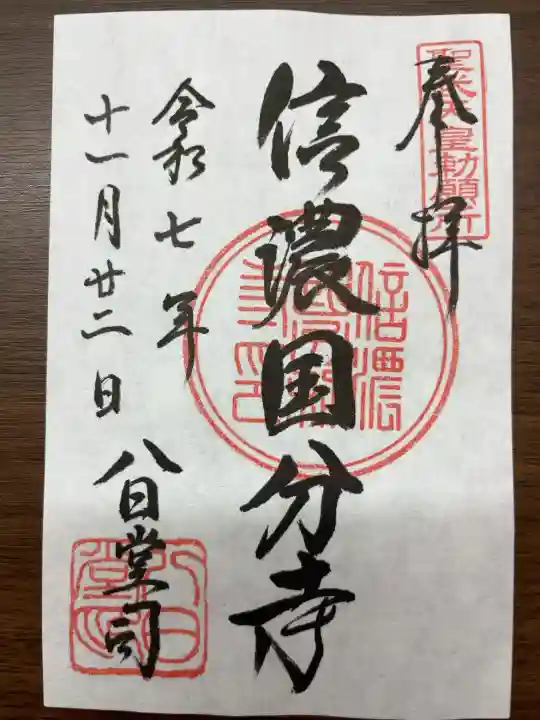 奉拝
聖武天皇勅願所
信濃国分寺
令和七年
十一月廿二日
八日堂司